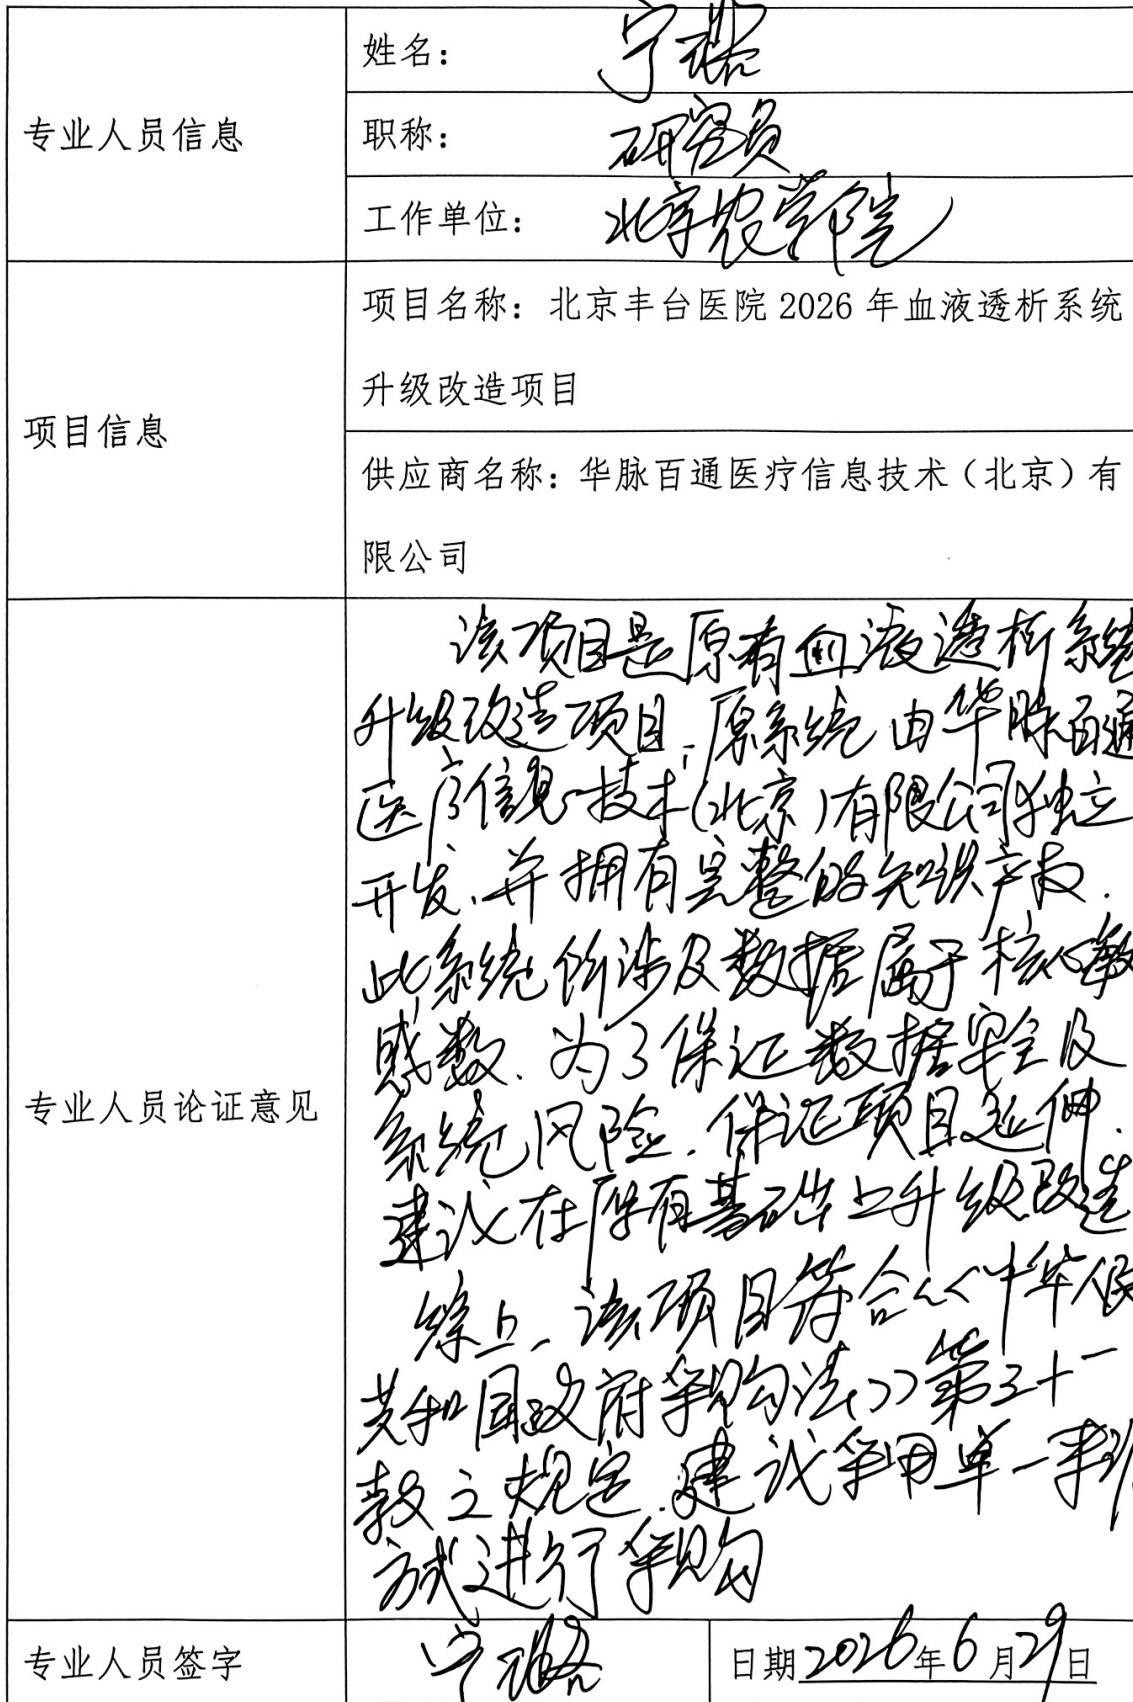 专业人员信息
姓名：宁璐
职称：研究员
工作单位：北京农学院
项目信息
项目名称：北京丰台医院 2026 年血液透析系统
升级改造项目
供应商名称：华脉百通医疗信息技术（北京）有
限公司
专业人员论证意见
该项目是原有血液透析系统
升级改造项目，原系统由华脉百通
医疗信息技术（北京）有限公司独立
开发，并拥有完整的知识产权．
此系统所涉及数据属于核心敏
感数．为了保证数据安全及
系统风险．保证项目延伸．
建议在原有基础上升级改造
综上，该项目符合《中华人民
共和国政府采购法》第三十一
款之规定．建议采用单一来源
方式进行采购
专业人员签字
宁璐
日期2026年6月29日